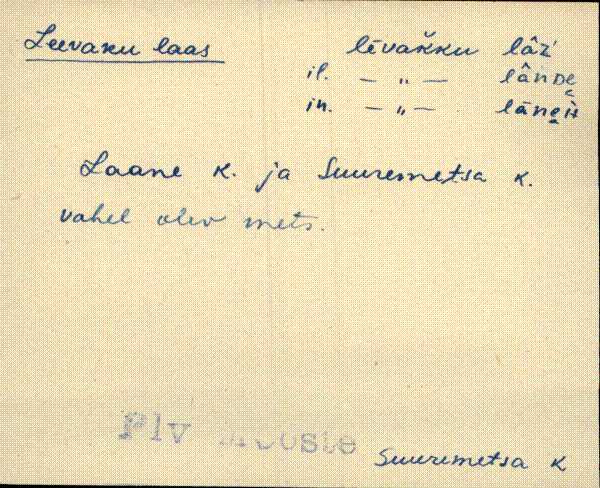 Leevaku laas lēvak̆ku lâz'
il. — „ — lânDe̮
in. — „ — lāne̮h
Laane k. ja Suuremetsa k.
vahel olev mets.
Plv Mooste
Suuremetsa k